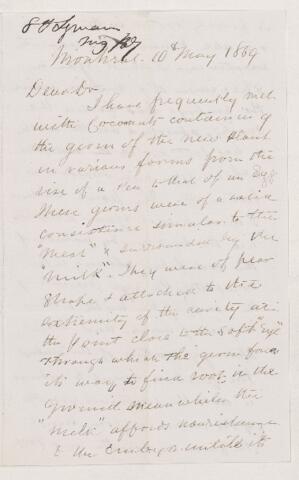 S H Lyman
Montreal. 10th May 1869
Dear Dr.
I have frequently met
with Cocoanuts containing
the germ of the new plant
in various forms from the
size of a Pea to that of an Egg
These germs were of a solid
consistence similar to the
"Meat" & surrounded by the
"Milk". They were of pear
shape & attached to the
extremity of the cavity at
the point close to the soft "Eye"
through which the germ
its way to find root in the
Ground meanwhile the
"Milk" affords nourishment
to the Embryo until its